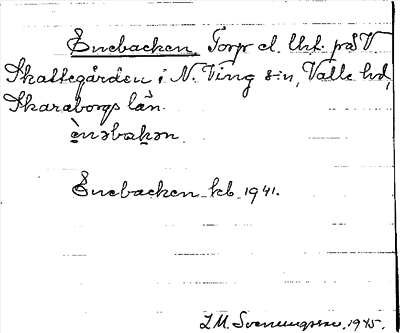 Enebacken. Torp el. lht. på V.
Skattegården i N. Ving s:n, Valle hd,
Skaraborgs län.
è̱nəbakən.
Enebacken kb. 1941.
I. M. Svenungsson, 1945.